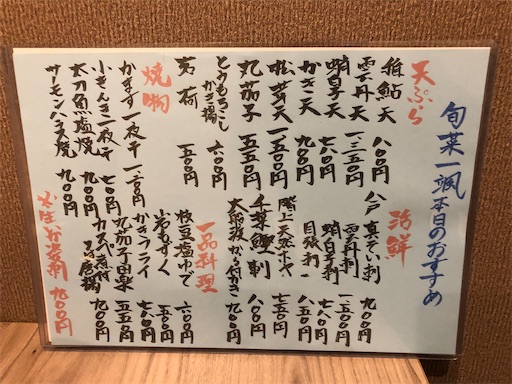 旬菜一颯本日のおすすめ
天ぷら
稚鮎天 八〇〇円
雲丹天 一、三五〇円
蛸白子天 七八〇円
かき天 九〇〇円
松茸天 一、五〇〇円
丸茄子 五五〇円
とうもろこしかき揚 六〇〇円
茗荷 五〇〇円
焼物
かます一夜干 一、二〇〇円
小きんき一夜干 七〇〇円
太刀魚塩焼 九〇〇円
サーモンハラス焼 九〇〇円
海鮮
八戸真ぞい刺 九〇〇円
雲丹刺 一、五〇〇円
蛸白子刺 七八〇円
目張刺 八五〇円
階上天然ホヤ 七五〇円
千葉鰹刺 八〇〇円
大船渡から付かき 九〇〇円
一品料理
枝豆塩ゆで 六〇〇円
岩もずく 五五〇円
かきフライ 七八〇円
丸茄子田楽 五五〇円